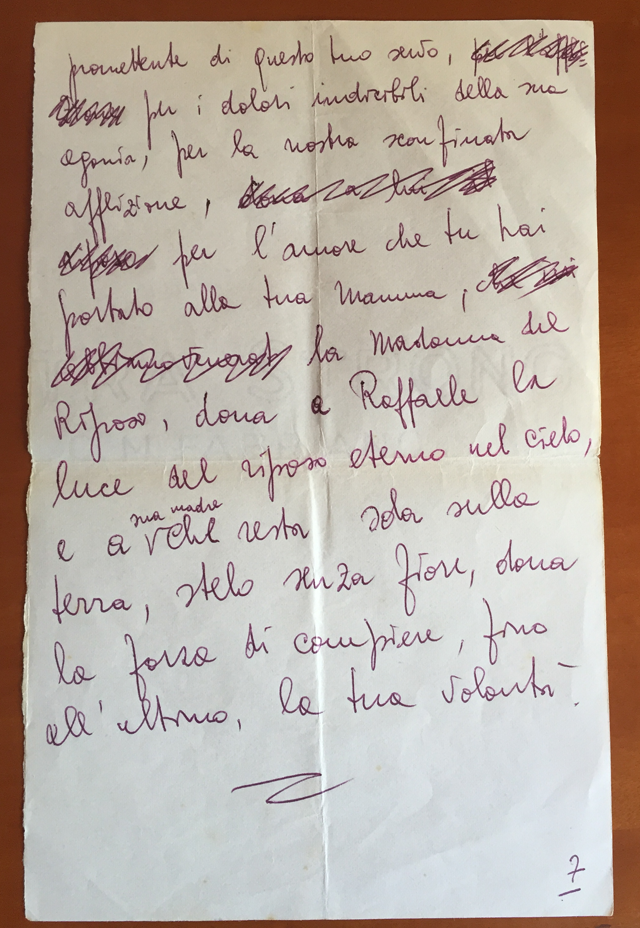 promettente di questo tuo servo,
per i dolori indicibili della sua
agonia, per la nostra sconfinata
afflizione,
per l'amore che tu hai
portato alla tua Mamma,
la Madonna del
Riposo, dona a Raffaele la
luce del riposo eterno nel cielo,
sua madre
e a che resta sola sulla
terra, stelo senza fiore, dona
la forza di compiere, fino
all'ultimo, la tua volontà.
7